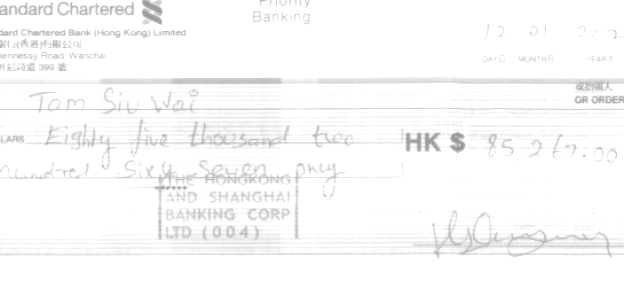 andard Chartered
Priority
Banking
dard Chartered Bank (Hong Kong) Limited
銀行(香港)有限公司
ennessy Road, Wanchai
軒尼詩道 399 號
12 01 202
DAY日 MONTH月 YEAR年
或持票人
OR ORDER
Tam Siu Wai
LARS Eighty five thousand two
HK $ 85,267.00
hundred Sixty Seven only
THE HONGKONG
AND SHANGHAI
BANKING CORP
LTD (004)